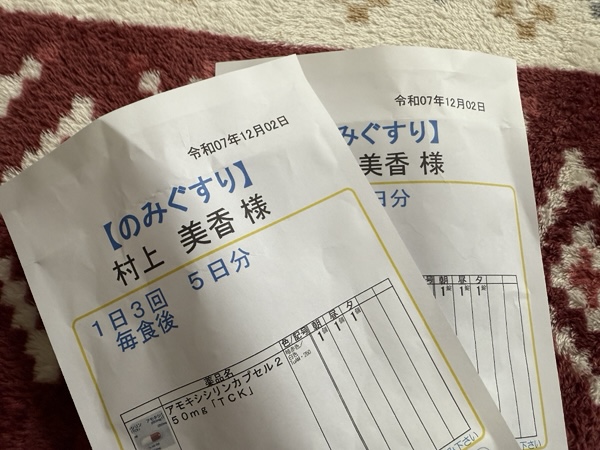 令和07年12月02日
【のみぐすり】
村上 美香 様
1日3回 5日分
毎食後
薬品名 色/記号 朝 昼 夕
アモキシシリンカプセル2
50mg「TCK」
1 1 1
令和07年12月02日
みぐすり】
美香 様
日分
朝 昼 夕
1錠 1錠 1錠
下さい